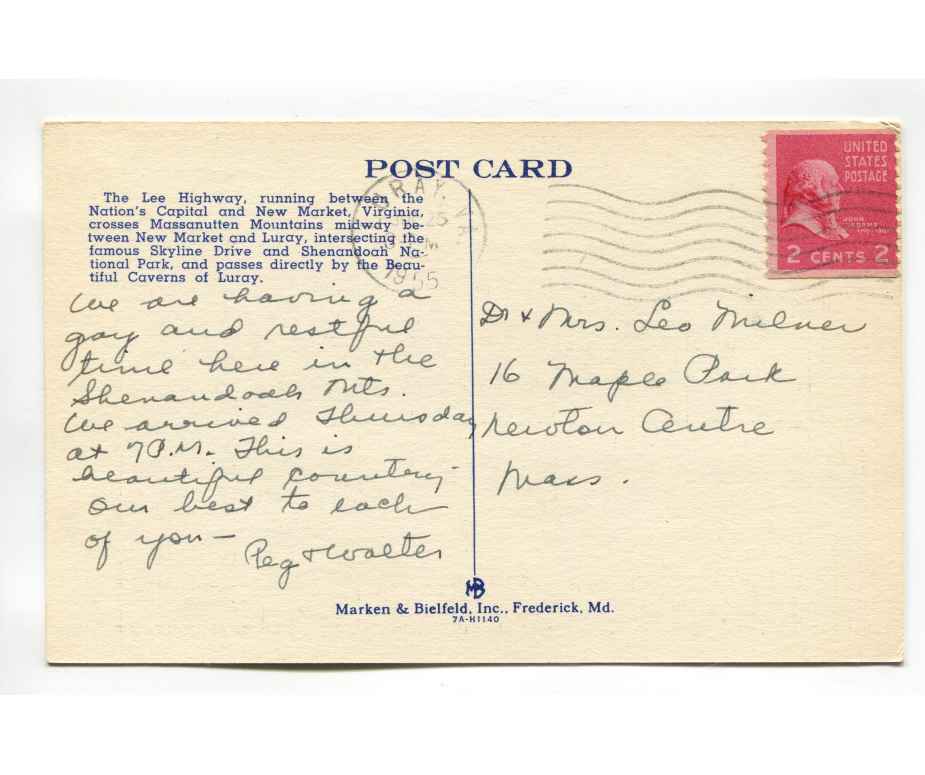 POST CARD
The Lee Highway, running between the
Nation's Capital and New Market, Virginia,
crosses Massanutten Mountains midway be-
tween New Market and Luray, intersecting the
famous Skyline Drive and Shenandoah Na-
tional Park, and passes directly by the Beau-
tiful Caverns of Luray.
URAY, VA.
1955
UNITED
STATES
POSTAGE
JOHN
ADAMS
2 CENTS 2
We are having a
gay and restful
time here in the
Shenandoah Mts.
We arrived Thursday
at 7 P.M. This is
beautiful country -
Our best to each
of you —
Peg & Walter
Dr & Mrs. Leo Milner
16 Maple Park
Newton Centre
Mass.
MB
Marken & Bielfeld, Inc., Frederick, Md.
7A-H1140